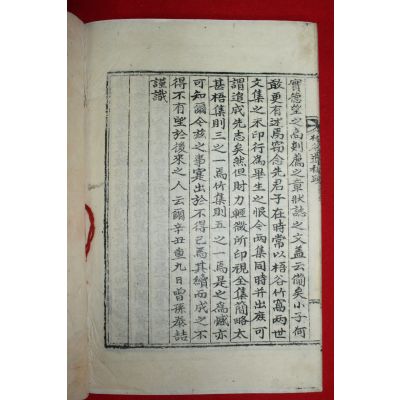 實德望之高則薦之章狀誌之文盖云備矣小子何
敢更有述焉窃念先君子在時常以梧谷竹窩兩世
文集之未印行爲畢生之恨今兩集同時幷出庶可
謂追成先志矣然但財力輕微所印視全集簡略太
甚梧集則三之一焉竹集則五之一焉是之爲憾亦
可知爾今玆之事寔出於不得已焉其續而成之不
得不有望於後來之人云爾辛丑重九日曾孫 喆
謹識